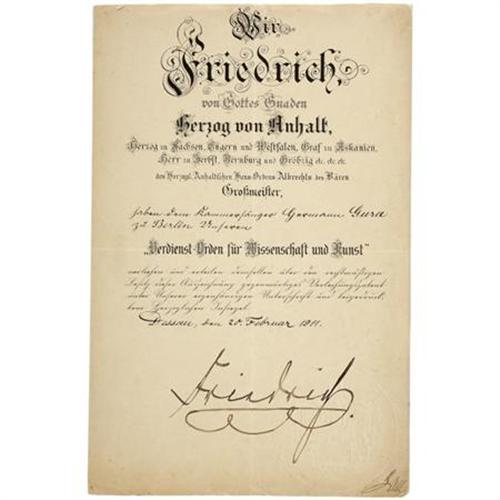 Wir
Friedrich,
von Gottes Gnaden
Herzog von Anhalt,
Herzog zu Sachsen, Engern und Westfalen, Graf zu Askanien,
Herr zu Zerbst, Bernburg und Gröbzig etc. etc. etc.
des Herzogl. Anhaltischen Haus-Ordens Albrechts des Bären
Großmeister,
haben dem Kammersänger Hermann Gura
zu Berlin Unseren
„Verdienst-Orden für Wissenschaft und Kunst"
verliehen und erteilen demselben über den rechtmäßigen
Besitz dieser Auszeichnung gegenwärtiges Verleihungspatent
unter Unserer eigenhändigen Unterschrift und beigedruck-
tem Herzoglichen Insiegel.
Dessau, den 20. Februar 1911.
Friedrich.